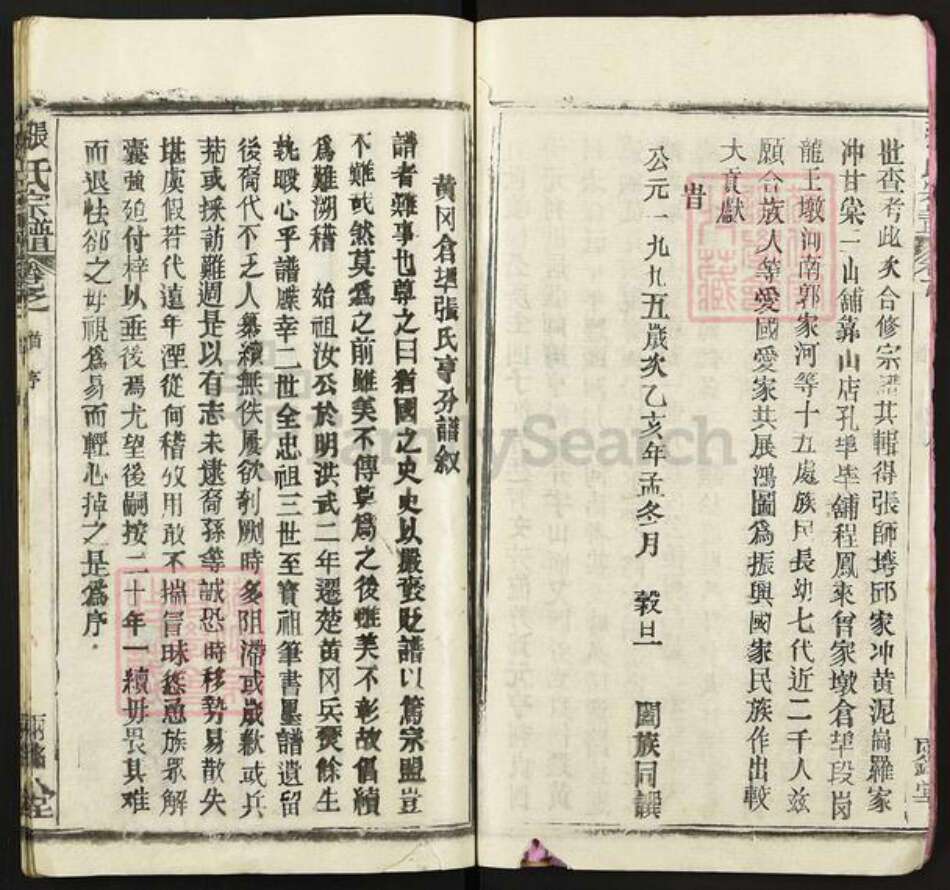 世查考此次合修宗譜共輯得張師塆邱家冲黃泥崗羅家
冲甘棠一山舖靠山店孔埠埠舖程鳳來曾家墩倉埠段岗
龍王墩河南郭家河等十五處族民長幼七代近二千人兹
願合族人等愛國愛家共展鴻圖爲振興國家民族作出較
大貢獻
旹
公元一九九五歲次乙亥年孟冬月 穀旦 闔族同譔
黄冈倉埠張氏享分譜叙
譜者難事也尊之曰猶國之史史以嚴褒貶譜以篤宗盟豈
不難哉然莫爲之前雖美不傳莫爲之後惟美不彰故倡續
爲難溯稽 始祖汝公於明洪武二年遷楚黄冈兵燹餘生
孰暇心乎譜牒幸二世全忠祖三世至寳祖筆書墨譜遺留
後裔代不乏人纂續無佚屢欲剞劂時多阻滞或歲歉或兵
荒或採訪難週是以有志未逮裔孫等誠恐時移勢易散失
堪虞假若代遠年湮從何稽攷用敢不揣冒昧慫恿族衆解
囊強廹付梓以垂後焉尤望後嗣按二十年一續毋畏其难
而退怯郤之毋視爲易而輕心掉之是爲序
張氏宗譜
卷之
首 序
兩銘堂
FamilySearch